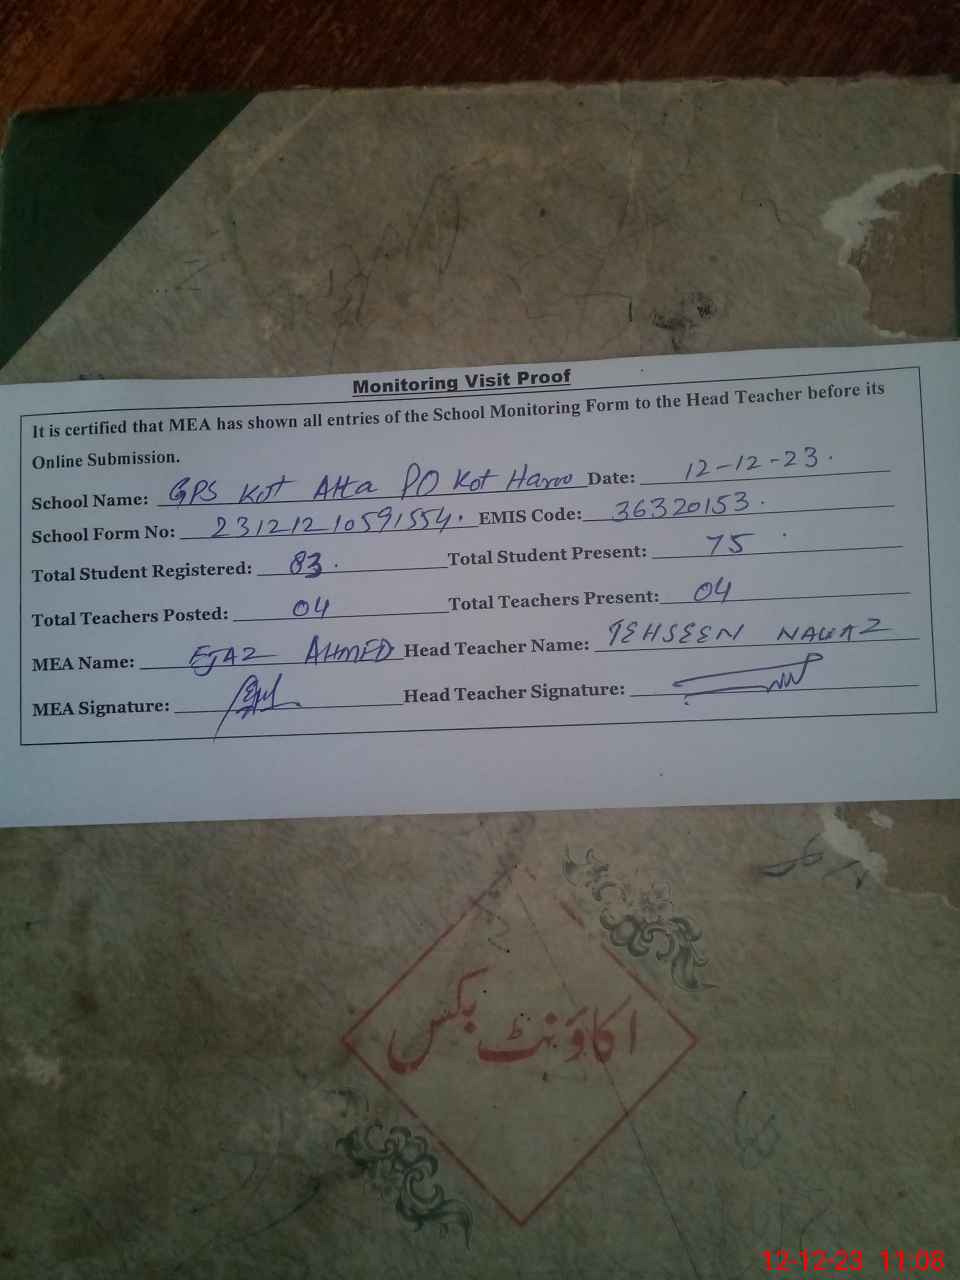 Monitoring Visit Proof
It is certified that MEA has shown all entries of the School Monitoring Form to the Head Teacher before its
Online Submission.
School Name: GPS Kot Atta PO Kot Haroo Date: 12-12-23.
School Form No: 23121210591554. EMIS Code: 36320153.
Total Student Registered: 83. Total Student Present: 75
Total Teachers Posted: 04 Total Teachers Present: 04
MEA Name: EJAZ AHMED Head Teacher Name: TEHSEEN NAWAZ
MEA Signature: Head Teacher Signature:
اکاؤنٹ بکس
12-12-23 11:08